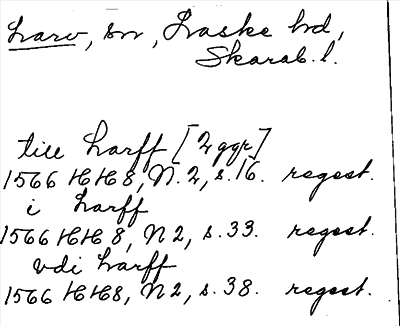 Larv, sn, Laske hd,
Skarab. l.
till Larff [2 ggr]
1566 HH8, N. 2, s. 16. regest.
i Larff
1566 HH 8, N 2, s. 33. regest.
vdi Larff
1566 HH8, N 2, s. 38. regest.